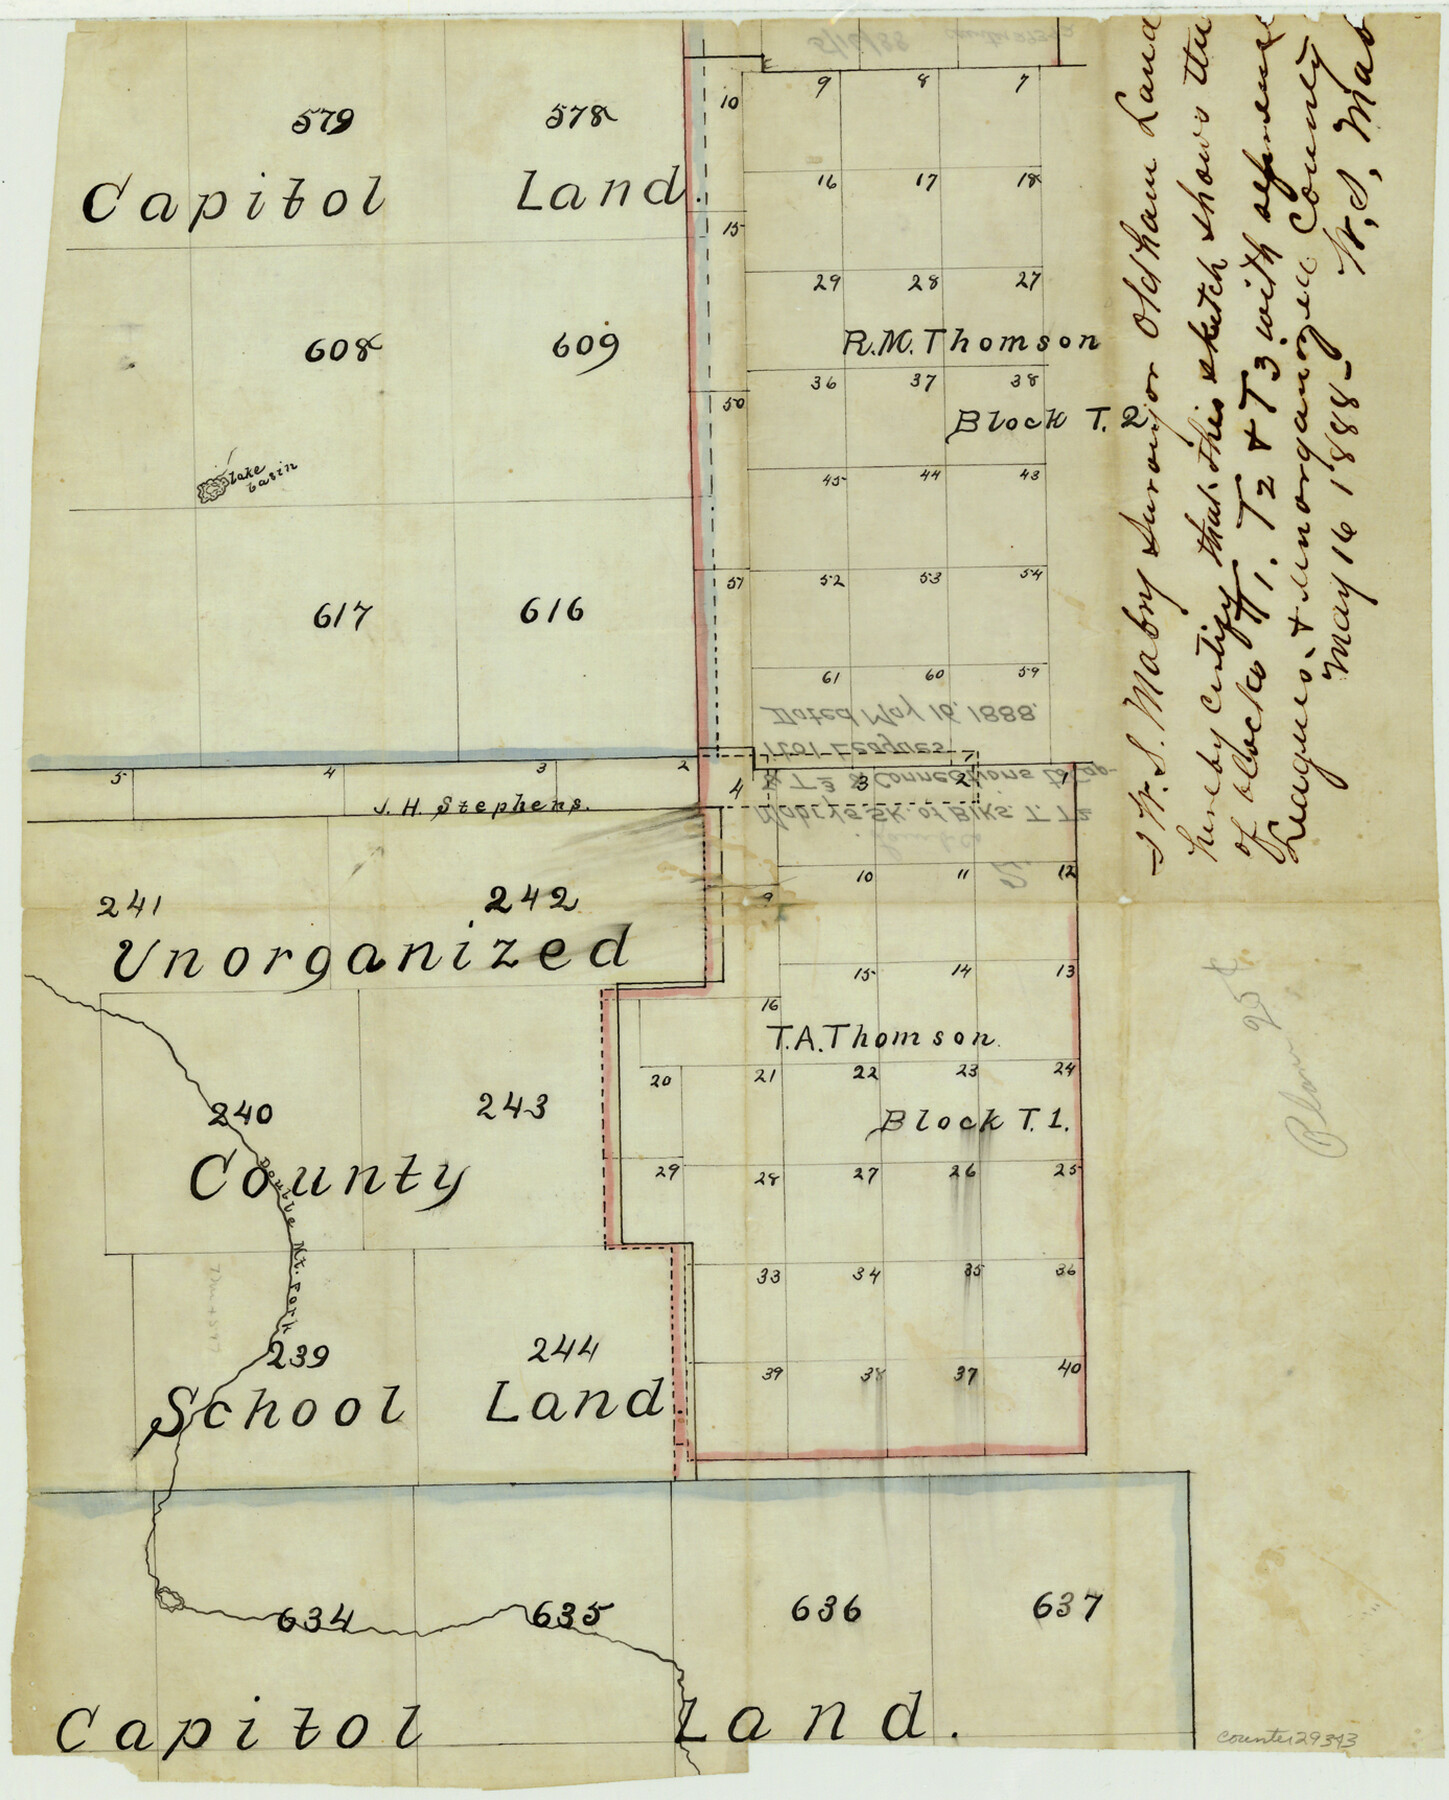 579 578
Capitol Land.
608 609
Lake
basin
617 616
10 9 8 7
16 17 18
15
29 28 27
R.M. Thomson
36 37 38
50
Block T. 2
45 44 43
51 52 53 54
61 60 59
Dated May 16, 1888.
itol Leagues
& T-3 & Connections to Cap-
Mabry's Sk. of Blks. T. T2
5 4 3 2
J. H. Stephens.
4 3 2 1
241 242
Unorganized
10 11 12
9
15 14 13
16
T.A. Thomson
20 21 22 23 24
240 243
Block T. 1.
County
29 28 27 26 25
Double Mt. Fork
33 34 35 36
239 244
School Land.
39 38 37 40
634 635 636 637
Capitol Land.
I W. S. Mabry Surveyor Oldham Land
hereby certify that this sketch shows the
of blocks T1. T2 & T3 with
Leagues & unorganized County
May 16 1888- W. S. Mab
5/16/88 counter 29393
counter 29393